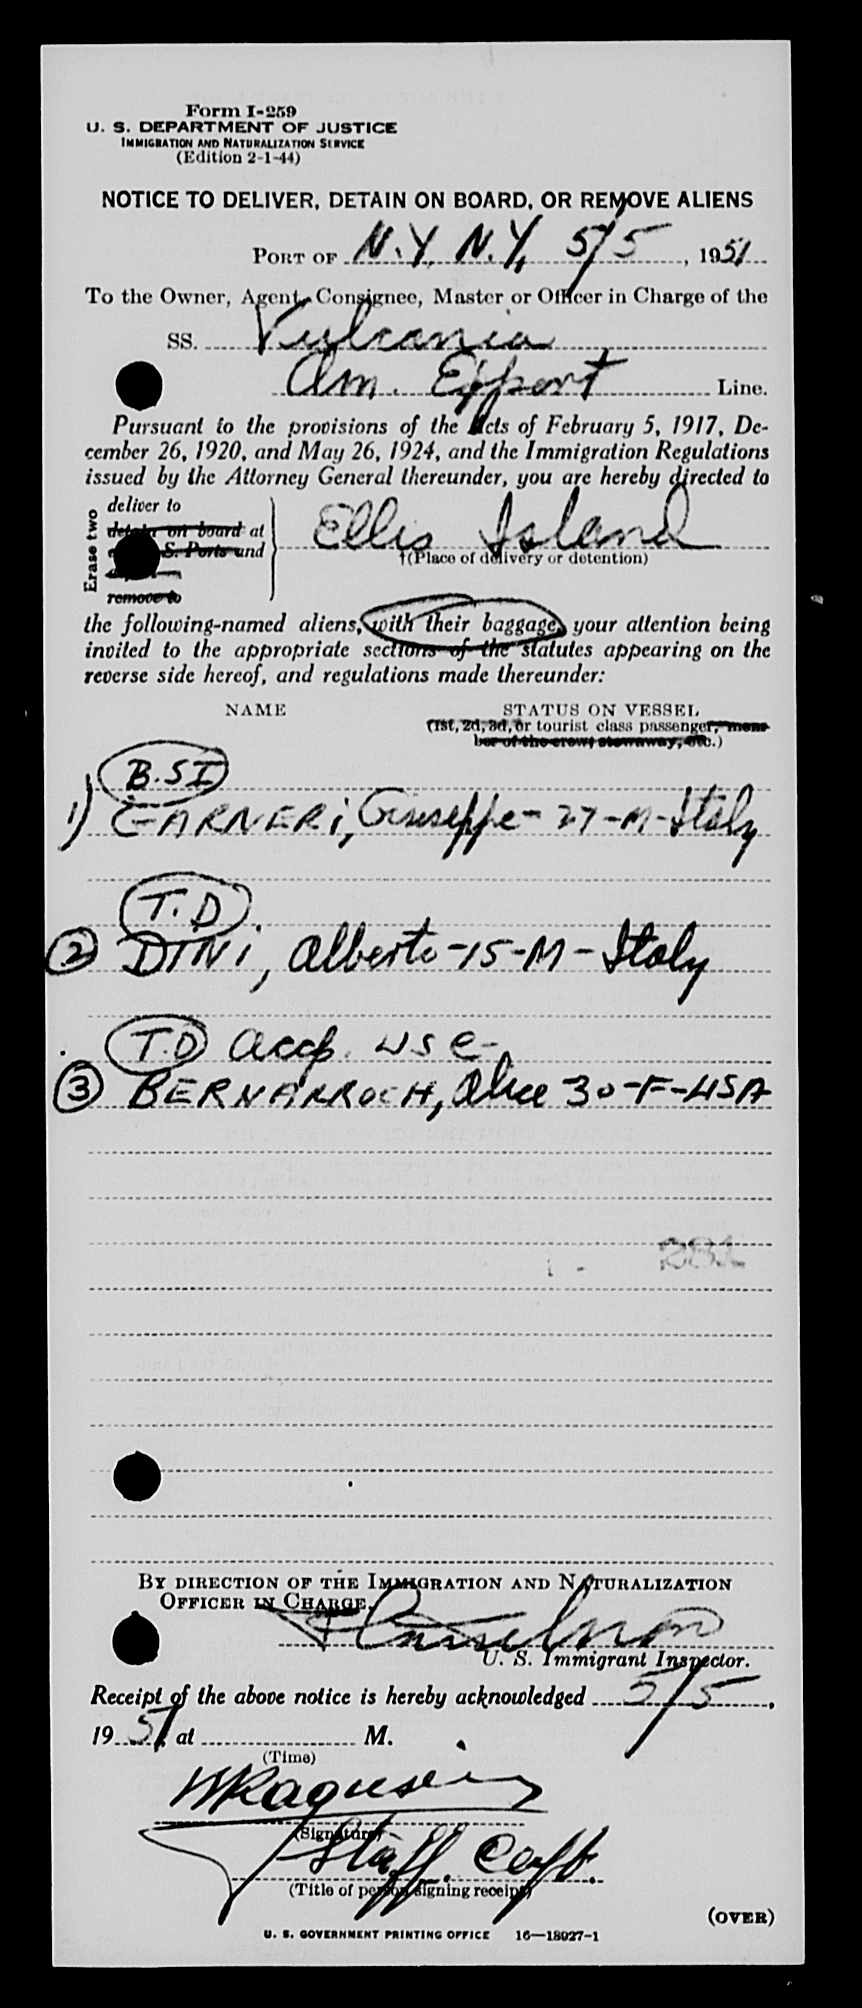 Form I-259
U. S. DEPARTMENT OF JUSTICE
IMMIGRATION AND NATURALIZATION SERVICE
(Edition 2-1-44)
NOTICE TO DELIVER, DETAIN ON BOARD, OR REMOVE ALIENS
PORT OF N.Y. N.Y. 5/5, 1951
To the Owner, Agent, Consignee, Master or Officer in Charge of the
SS. Vulcania
Am. Export Line.
Pursuant to the provisions of the Acts of February 5, 1917, De-
cember 26, 1920, and May 26, 1924, and the Immigration Regulations
issued by the Attorney General thereunder, you are hereby directed to
Erase two
deliver to
detain on board at
S. Ports and
remove to
Ellis Island
†(Place of delivery or detention)
the following-named aliens, with their baggage, your attention being
invited to the appropriate sections of the statutes appearing on the
reverse side hereof, and regulations made thereunder:
NAME STATUS ON VESSEL
(1st, 2d, 3d, or tourist class passenger, mem-
ber of the crew, stowaway, etc.)
B.SI
1) GARNERi, Giuseppe - 27 - M - Italy
T.D
2 DINi, Alberto - 15 - M - Italy
T.D accp. USC -
3 BERNARROCH, Alice 30 - F - USA
281
BY DIRECTION OF THE IMMIGRATION AND NATURALIZATION
OFFICER IN CHARGE.
U. S. Immigrant Inspector.
Receipt of the above notice is hereby acknowledged 5/5,
1951, at M.
(Time)
(Signature)
Staff. Capt.
(Title of person signing receipt)
(OVER)
U. S. GOVERNMENT PRINTING OFFICE 16—18927-1